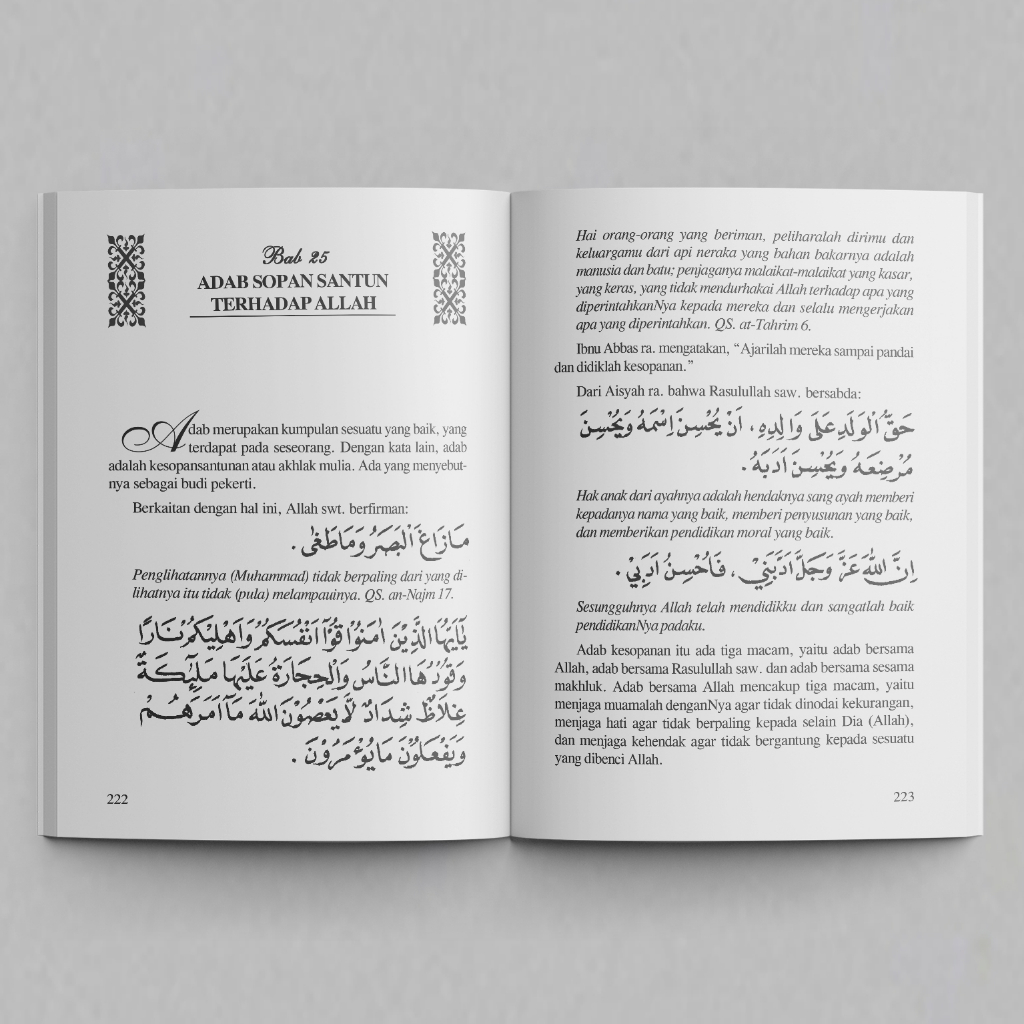 Bab 25
ADAB SOPAN SANTUN
TERHADAP ALLAH
Adab merupakan kumpulan sesuatu yang baik, yang
terdapat pada seseorang. Dengan kata lain, adab
adalah kesopansantunan atau akhlak mulia. Ada yang menyebut-
nya sebagai budi pekerti.
Berkaitan dengan hal ini, Allah swt. berfirman:
مَازَاغَ الْبَصَرُ وَمَا طَغٰى .
Penglihatannya (Muhammad) tidak berpaling dari yang di-
lihatnya itu tidak (pula) melampauinya. QS. an-Najm 17.
يٰٓاَيُّهَا الَّذِيْنَ اٰمَنُوْا قُوْٓا اَنْفُسَكُمْ وَاَهْلِيْكُمْ نَارًا
وَقُوْدُهَا النَّاسُ وَالْحِجَارَةُ عَلَيْهَا مَلٰٓئِكَةٌ
غِلَاظٌ شِدَادٌ لَا يَعْصُوْنَ اللهَ مَآ اَمَرَهُمْ
وَيَفْعَلُوْنَ مَا يُؤْمَرُوْنَ .
222
Hai orang-orang yang beriman, peliharalah dirimu dan
keluargamu dari api neraka yang bahan bakarnya adalah
manusia dan batu; penjaganya malaikat-malaikat yang kasar,
yang keras, yang tidak mendurhakai Allah terhadap apa yang
diperintahkanNya kepada mereka dan selalu mengerjakan
apa yang diperintahkan. QS. at-Tahrim 6.
Ibnu Abbas ra. mengatakan, “Ajarilah mereka sampai pandai
dan didiklah kesopanan.”
Dari Aisyah ra. bahwa Rasulullah saw. bersabda:
حَقُّ الْوَلَدِ عَلَى وَالِدِهِ ، اَنْ يُحْسِنَ اِسْمَهُ وَيُحْسِنَ
مُرْضِعَهُ وَيُحْسِنَ اَدَبَهُ .
Hak anak dari ayahnya adalah hendaknya sang ayah memberi
kepadanya nama yang baik, memberi penyusunan yang baik,
dan memberikan pendidikan moral yang baik.
اِنَّ اللهَ عَزَّ وَجَلَّ اَدَّبَنِيْ ، فَاَحْسَنَ اَدَبِيْ .
Sesungguhnya Allah telah mendidikku dan sangatlah baik
pendidikanNya padaku.
Adab kesopanan itu ada tiga macam, yaitu adab bersama
Allah, adab bersama Rasulullah saw. dan adab bersama sesama
makhluk. Adab bersama Allah mencakup tiga macam, yaitu
menjaga muamalah denganNya agar tidak dinodai kekurangan,
menjaga hati agar tidak berpaling kepada selain Dia (Allah),
dan menjaga kehendak agar tidak bergantung kepada sesuatu
yang dibenci Allah.
223